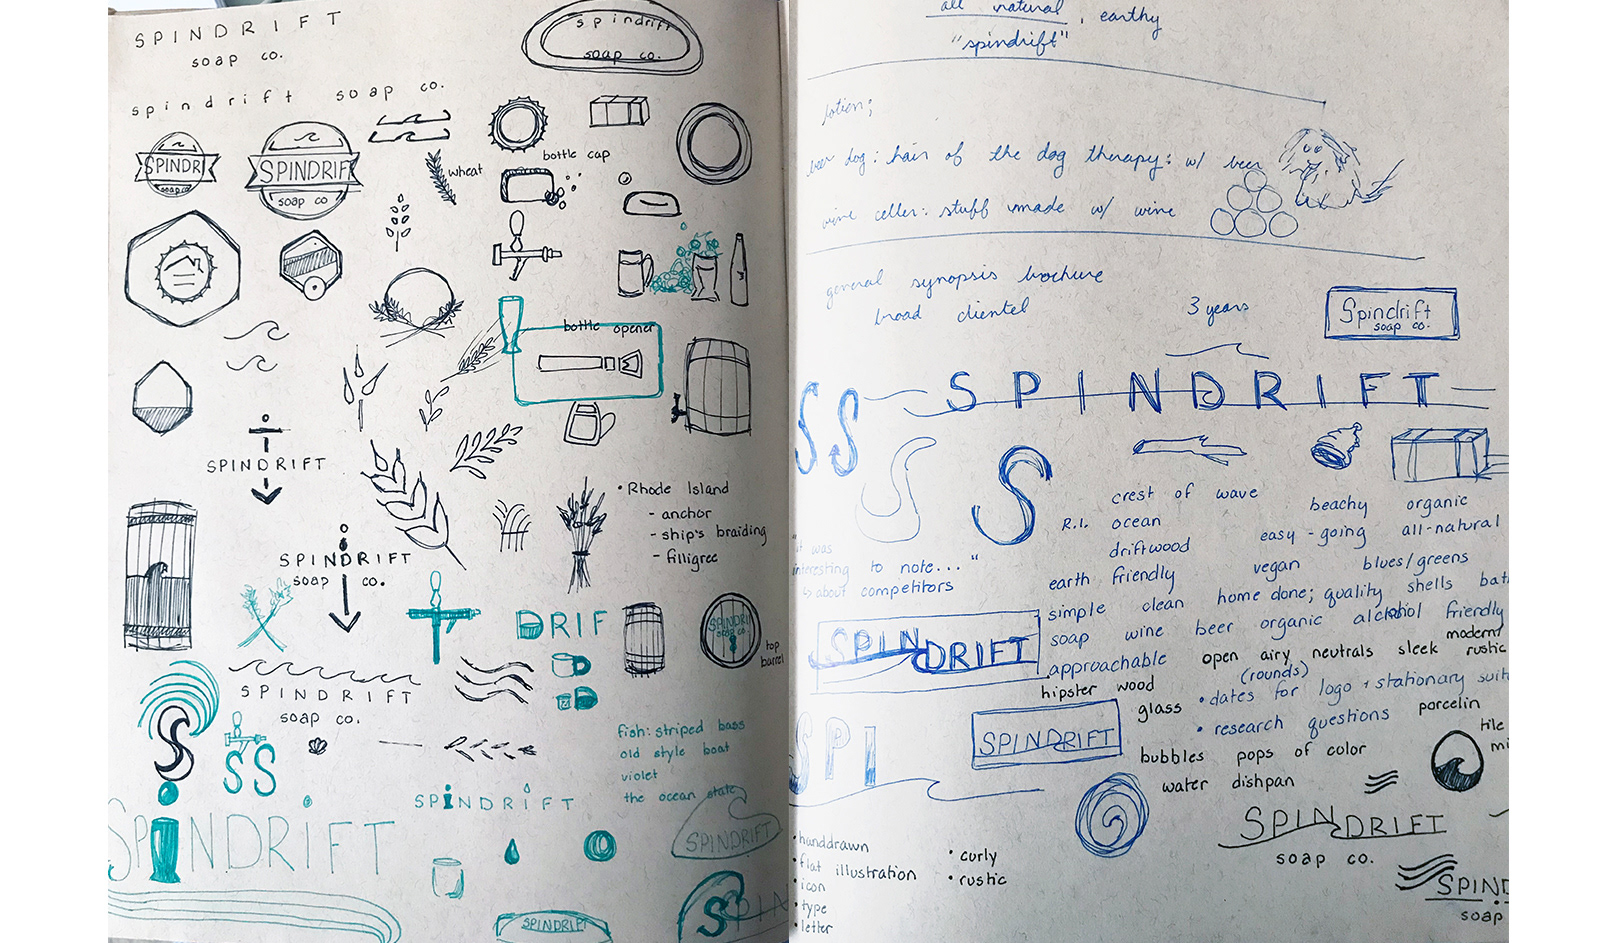 SPINDRIFT
soap co.
spindrift
soap co.
spindrift soap co.
SPINDRI
soap co
SPINDRIF
soap co
wheat
bottle cap
bottle opener
SPINDRIFT
• Rhode Island
- anchor
- ship's braiding
- filligree
SPINDRIFT
soap co.
DRIF
SPINDRIF
soap co
top
barrel
SPINDRIFT
soap co.
S
SS
fish: striped bass
old style boat
violet
the ocean state
SPINDRIFT
SPINDRIFT
SPINDRIFT
SPINDRIFT
SPIN
all natural, earthy
"spindrift"
lotion;
beer dog: hair of the dog therapy: w/ beer
wine celler: stuff made w/ wine
general synopsis brochure
broad clientel
3 years
Spindrift
soap co.
SPINDRIFT
SS
S
S
crest of wave
beachy organic
R.I. ocean
easy-going all-natural
driftwood
"it was
interesting to note..."
↳ about competitors
earth friendly vegan blues/greens
simple clean home done; quality shells bat
soap wine beer organic alcohol friendly
SPINDRIFT
approachable open airy neutrals sleek modern/
rustic
(rounds)
hipster wood
glass
• dates for logo + stationary suit
• research questions porcelin
tile
mi
SPI
SPINDRIFT
bubbles pops of color
water dishpan
SPINDRIFT
soap co.
• handdrawn
• flat illustration
• icon
• type
• letter
• curly
• rustic
SPIND
soap